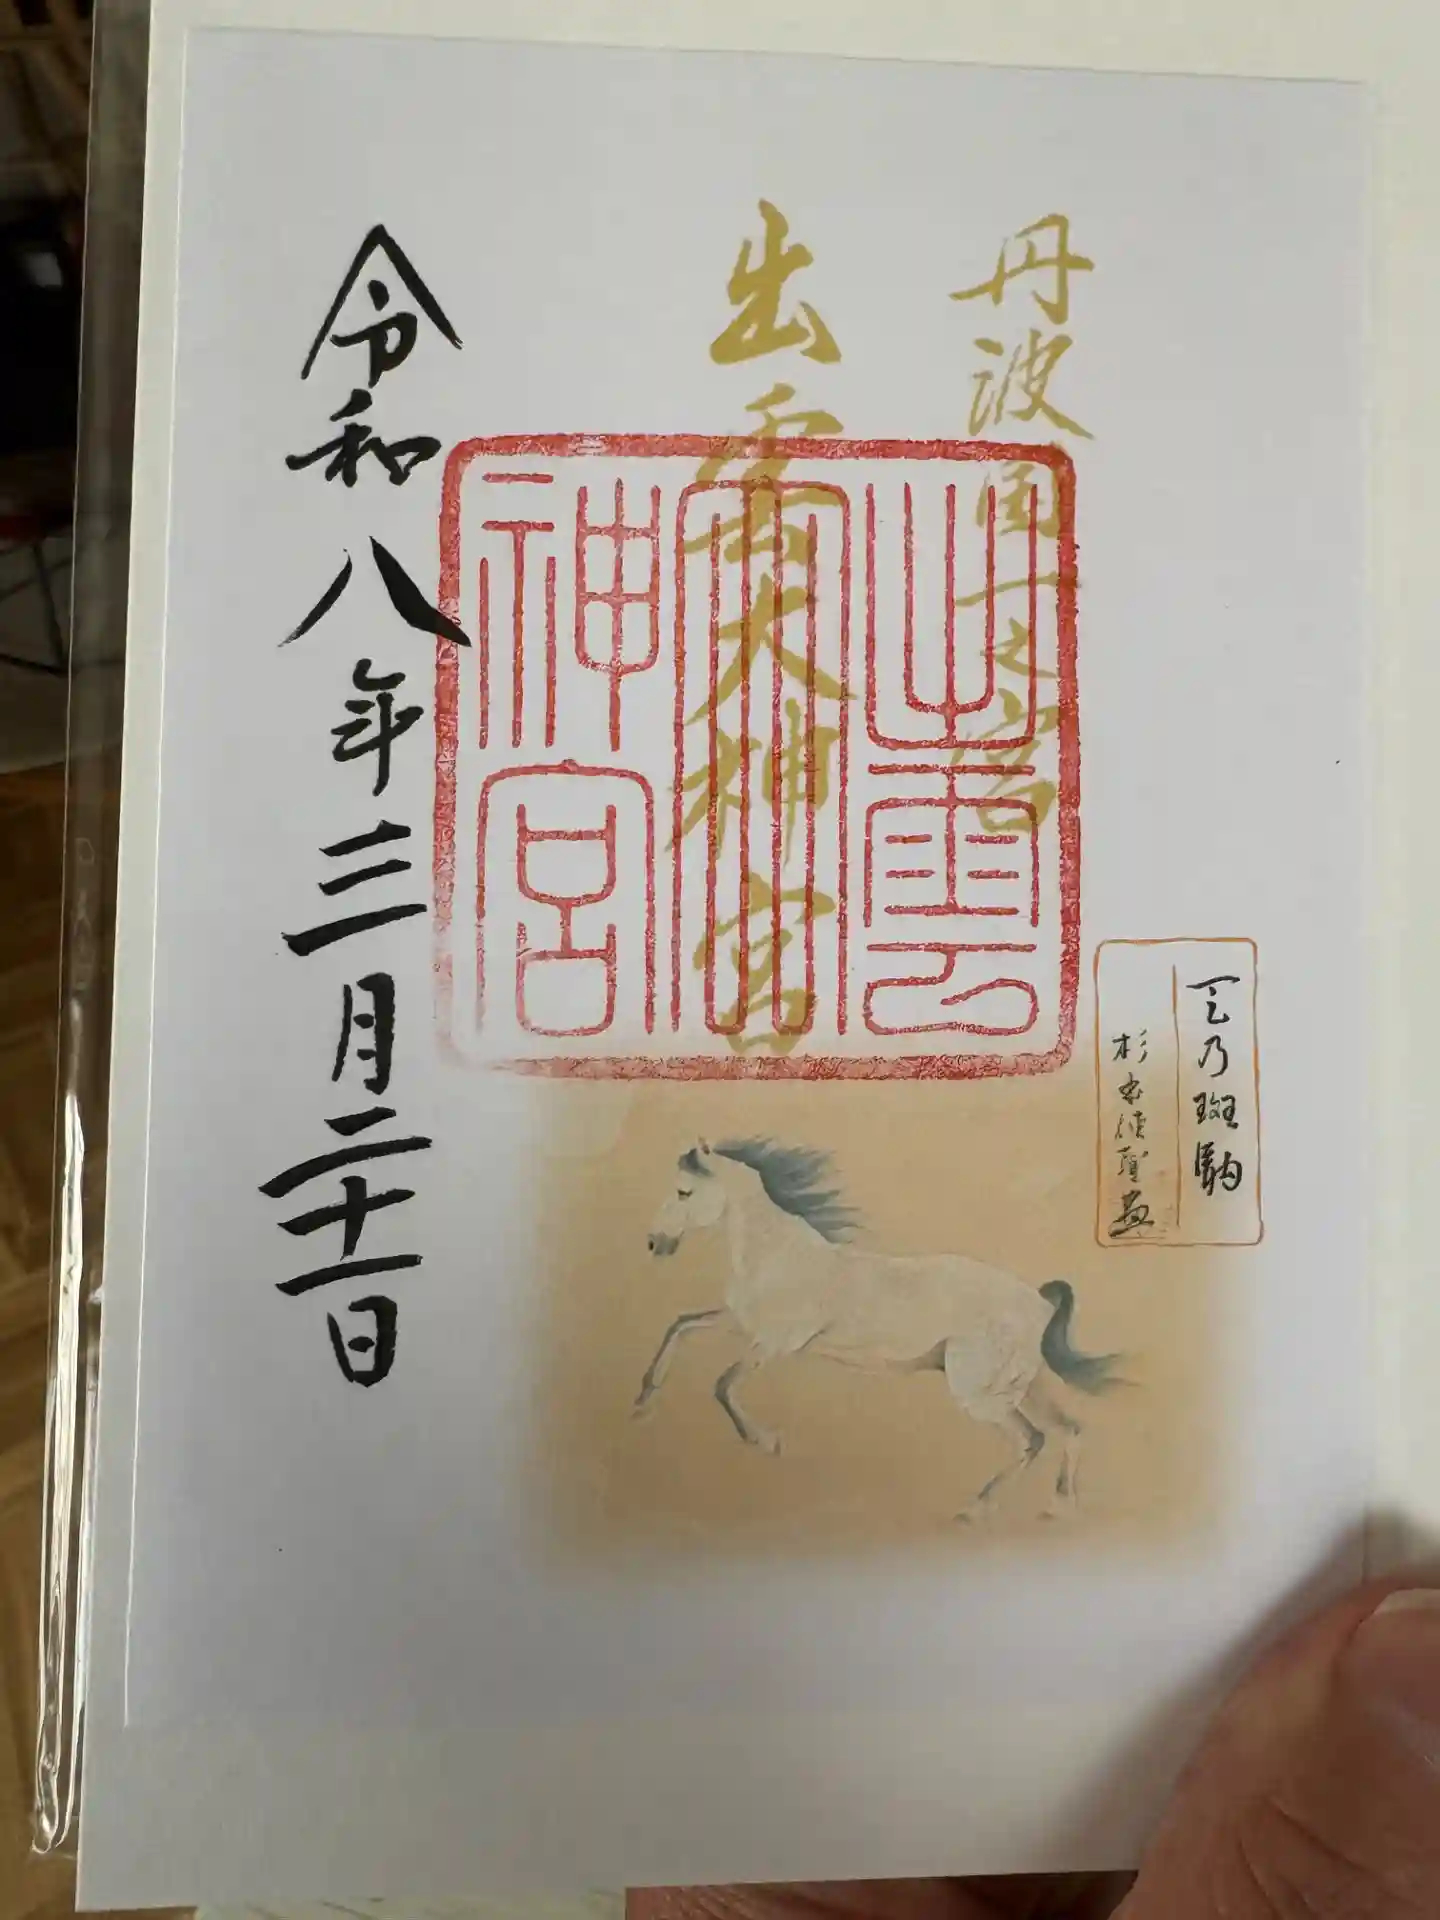 丹波国一之宮
出雲大神宮
出雲
大
神宮
令和八年三月二十一日
天乃斑駒
杉本
画